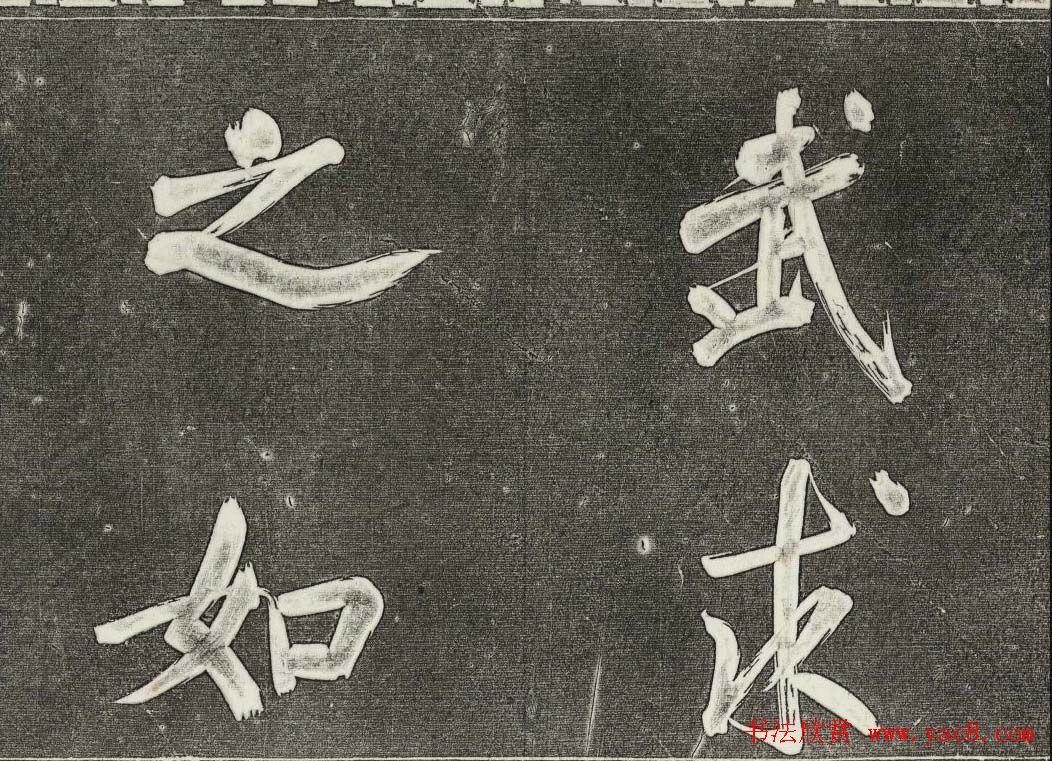 武求
之如
书法欣赏 www.yac8.com